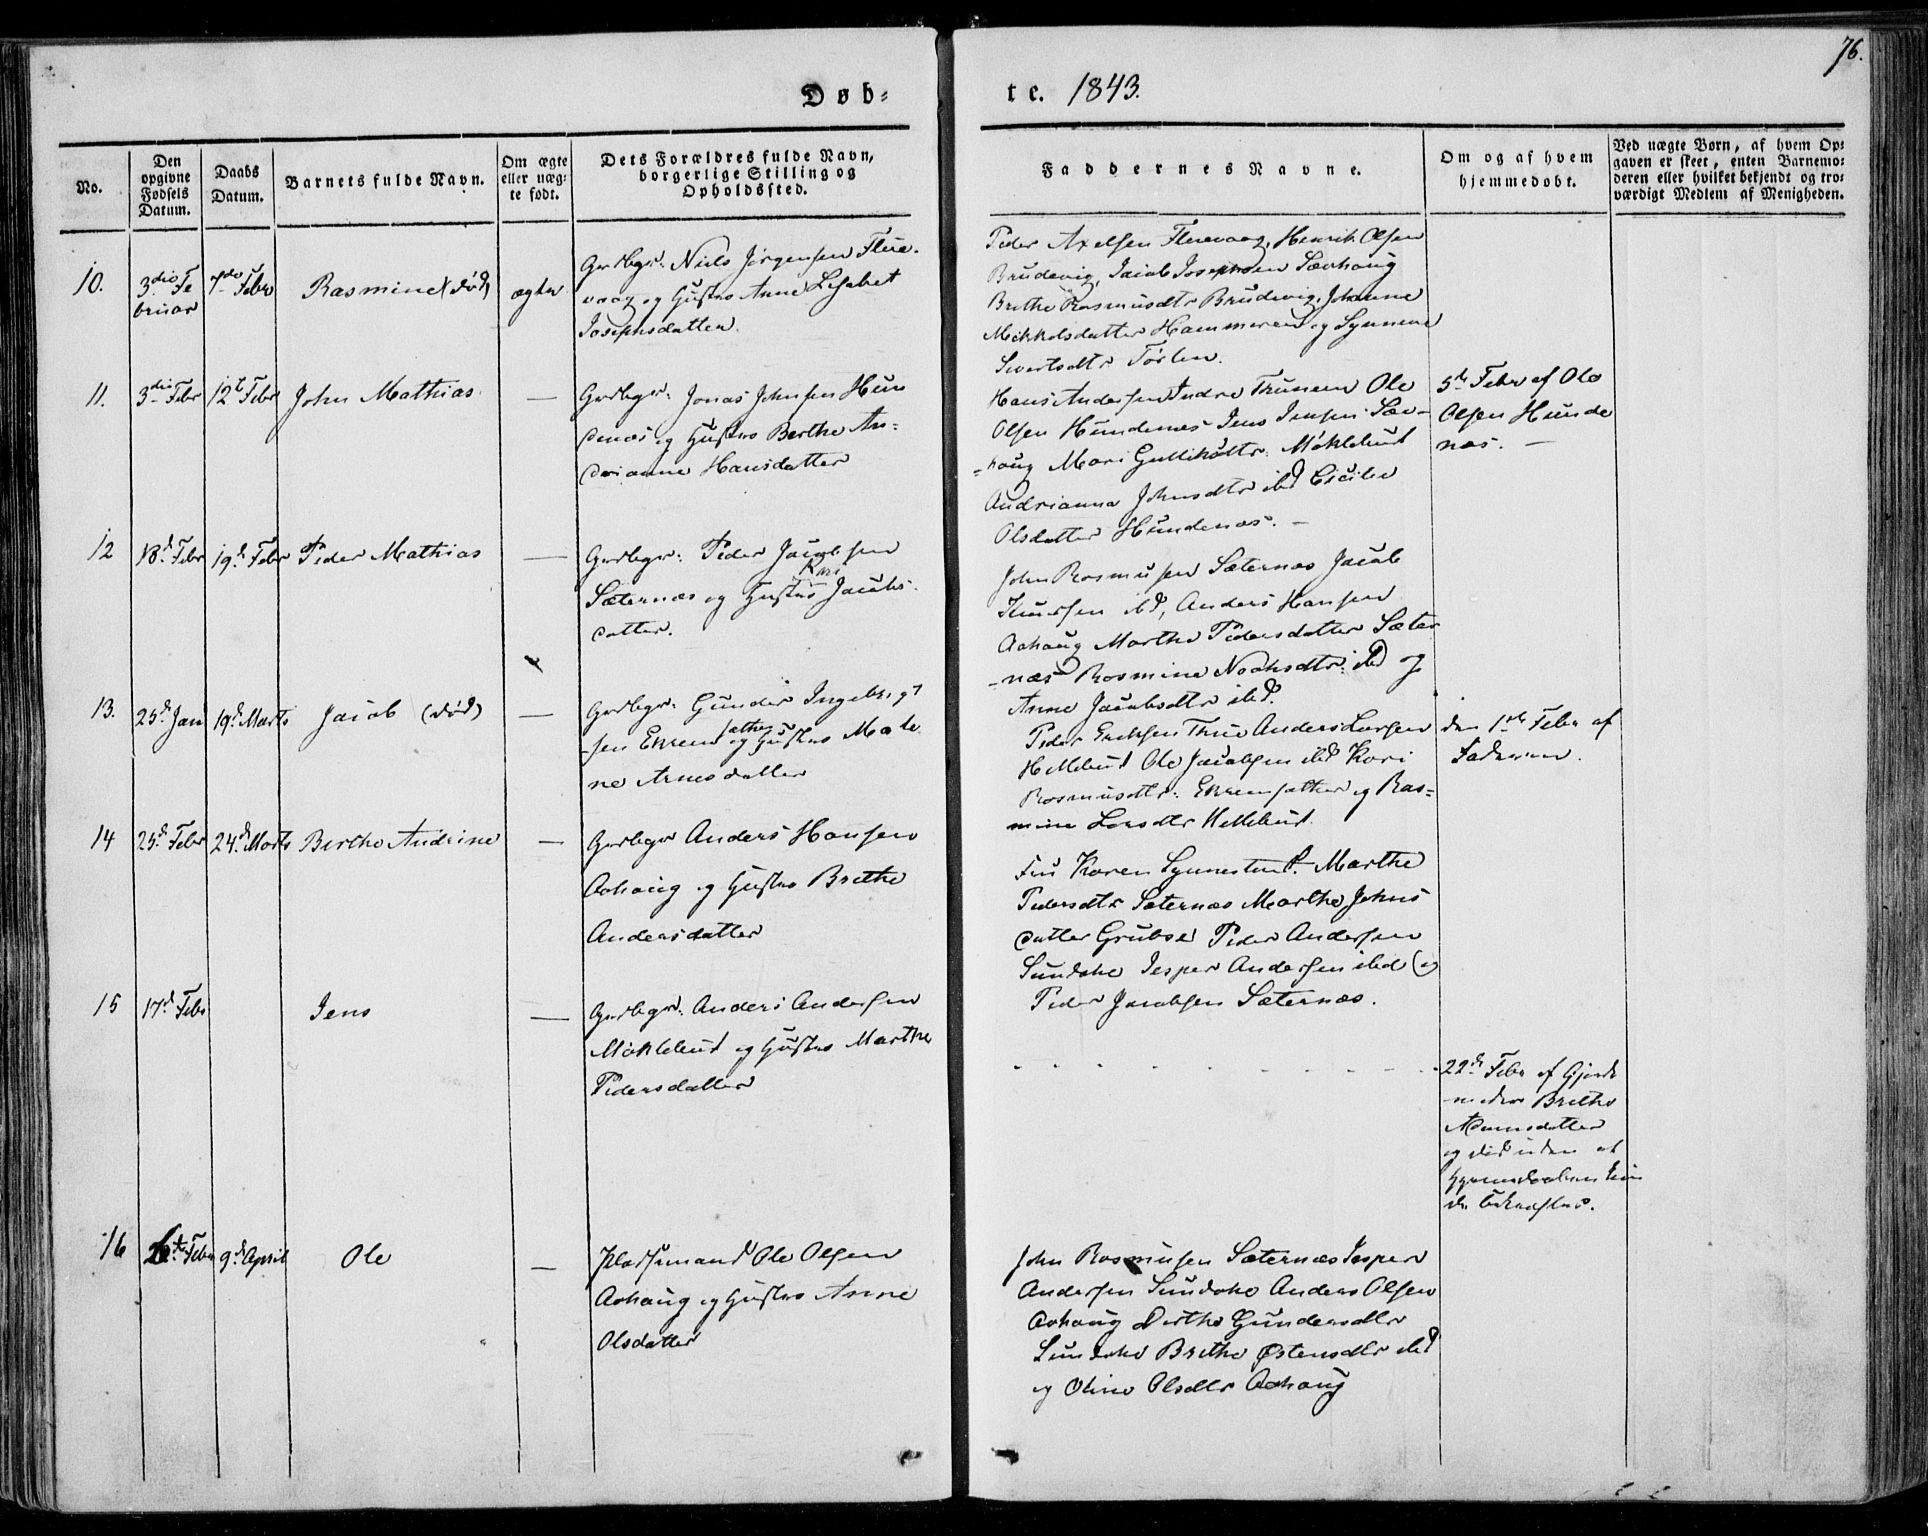 76.
Døb=
te. 1843.
No.
Den opgivne Fødsels Datum.
Daabs Datum.
Barnets fulde Navn.
Om ægte eller uægte født.
Dets Forældres fulde Navn, borgerlige Stilling og Opholdssted.
Faddernes Navne.
Om og af hvem hjemmedøbt.
Ved uægte Børn, af hvem Opgaven er skeet, enten Barnemoderen eller hvilket bekjendt og troværdigt Medlem af Menigheden.
10.
3die Fe
bruar
7de Febr
Rasmine (død)
ægte
Grdbgr: Niels Jörgensen Flue-
vaag og Hustro Anne Lisabet
Josephsdatter.
Peder Axelsen Fluevaag, Henrik Olsen
Brudevig, Jacob Josephsen Sævhaug
Brethe Rasmusdtr Brudevig, Johanne
Mikkelsdatter Hammeren og Synneve
Sivertsdtr Törlen.
11.
3die Febr
12t Febr
John Mathias.
—
Grdbgr: Jonas Johnsen Hun
denæs og Hustro Berthe An=
drianne Hansdatter
Hans Andersen Indre Thunem Ole
Olsen Hundenæs Jens Jensen Sæv-
=haug Mari Gullikdttr: Möklebust
Andrianna Johnsdtr ibd Cicilie
Olsdatter Hundenæs. —
5te Febr af Ole
Olsen Hunde
næs. —
12
18d Febr
19d Febr
Peder Mathias
—
Grdbgr: Peder Jacobsen
Kari
Sæternæs og Hustro Jacobs-
datter.
John Rasmusen Sæternæs Jacob
Knudsen ibd, Anders Hansen
Aahaug Marthe Pedersdatter Sæter
-næs Rasmine Noahsdtr: ibd og
Anne Jacobsdtr ibd.
13.
25d Jan
19d Marts
Jacob (død)
—
Grdbgr: Gunder Ingebrigt
sæther
-sen Ekrem og Hustro Male
ne Arnesdatter
Peder Eriksen Thue Anders Larsen
Hellebust Ole Jacobsen ibd Kari
Rasmusdtr: Ekremsæther og Ras=
mine Larsdtr Hellebust.
den 1ste Febr af
Faderen.
14
25d Febr
24d Marts
Berthe Andrine
—
Grdbgr Anders Hansen
Aahaug og Hustro Brethe
Andersdatter
Fru Karen Synnestvedt. Marthe
Pedersdtr Sæternæs Marthe Johns
datter Grubse Peder Andersen
Sundske Jesper Andersen ibd (og
Peder Jacobsen Sæternæs.
15
17d Febr
Jens
—
Grdbgr: Anders Andersen
Möklebust og Hustro Marthe
Pedersdatter
22de Febr af Gjorde
moder Brethe
datter
og død uden at
hjemmedaaben kun
de bekræftes.
16
26te Febr
9d April
Ole
—
Pladsemand Ole Olsen
Aahaug og Hustro Anne
Olsdatter
John Rasmusen Sæternæs Jesper
Andersen Sundske Anders Olsen
Aahaug Berthe Gundersdtr
Sundske Brethe Østensdtr ibd
og Oline Olsdtr Aahaug